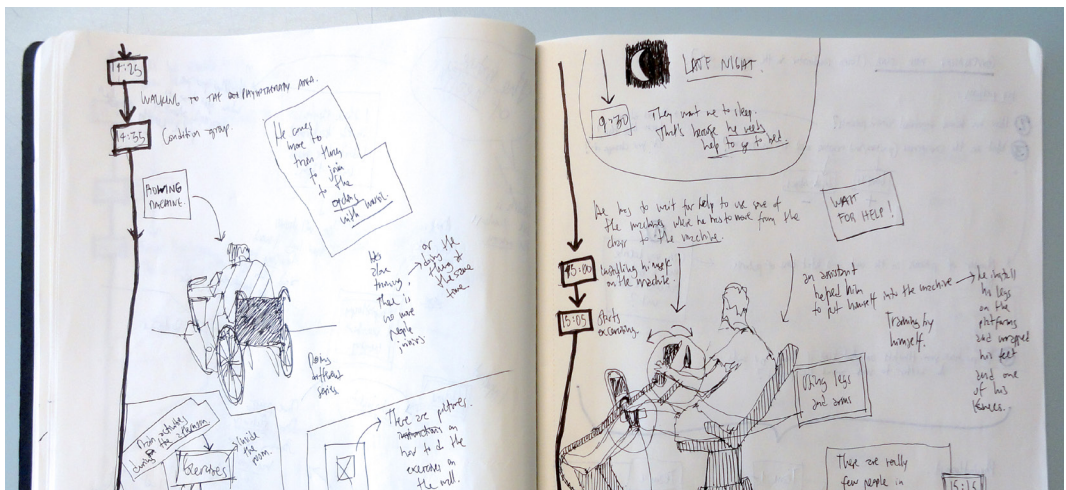 14:25
WALKING TO THE PHYSIOTHERAPY AREA.
14:35
Condition group.
He comes
more to
train things
to join
to the
cycling
with hand.
ROWING
MACHINE.
He's
alone
training,
There is
no more
people
joining
or
doing the
thing at
the same
time.
Doing
different
series
Main activities
during the afternoon
Exercises
inside
the room.
There are pictures.
on
how to do the
exercises on
the wall.
LATE NIGHT.
9:30
They want me to sleep.
That's because he needs
help to go to bed.
He has to wait for help to use some of
the machines where he has to move from the
chair to the machine.
WAIT
FOR HELP!
15:00
installing himself
on the machine.
15:05
Starts
excercising.
an assistant
helped him
to put himself into the machine
he install
his legs
on the
platforms
and wrapped
his feet
and one
of his
knees.
Training by
himself.
Using legs
and arms
There are really
few people in
15:15